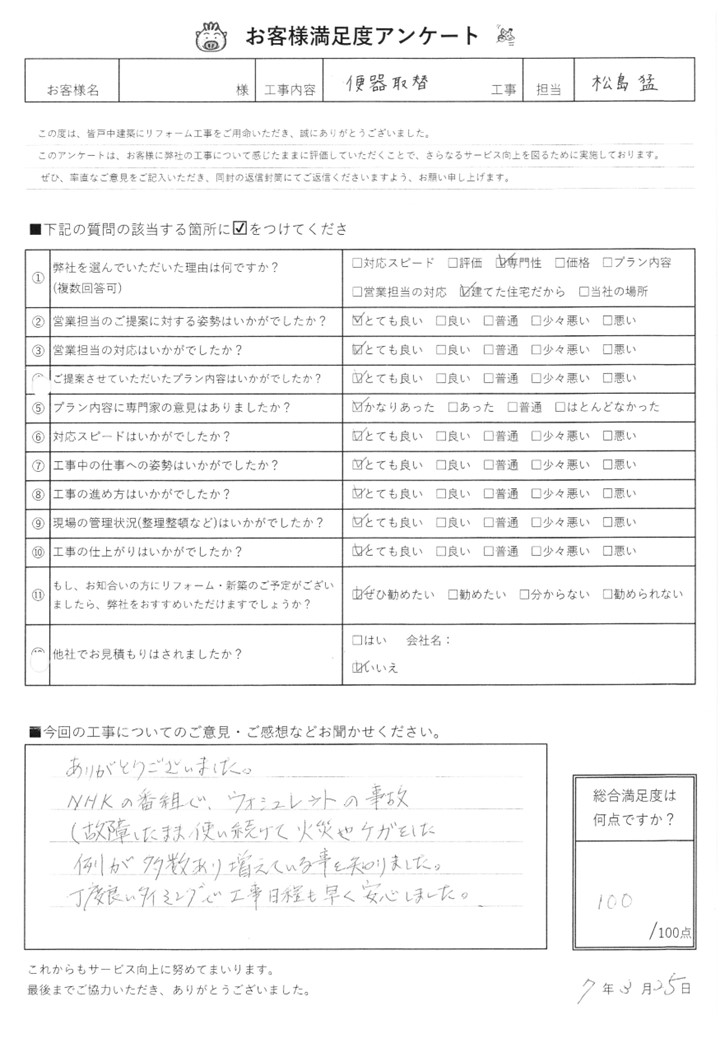 お客様満足度アンケート
お客様名 様 工事内容 便器取替 工事 担当 松島 猛
この度は、皆戸中建築にリフォーム工事をご用命いただき、誠にありがとうございました。
このアンケートは、お客様に弊社の工事について感じたままに評価していただくことで、さらなるサービス向上を図るために実施しております。
ぜひ、率直なご意見をご記入いただき、同封の返信封筒にてご返信くださいますよう、お願い申し上げます。
■下記の質問の該当する箇所に☑をつけてくださ
① 弊社を選んでいただいた理由は何ですか？
(複数回答可)
□対応スピード □評価 ☑専門性 □価格 □プラン内容
□営業担当の対応 ☑建てた住宅だから □当社の場所
② 営業担当のご提案に対する姿勢はいかがでしたか？ ☑とても良い □良い □普通 □少々悪い □悪い
③ 営業担当の対応はいかがでしたか？ ☑とても良い □良い □普通 □少々悪い □悪い
ご提案させていただいたプラン内容はいかがでしたか？ ☑とても良い □良い □普通 □少々悪い □悪い
⑤ プラン内容に専門家の意見はありましたか？ ☑かなりあった □あった □普通 □ほとんどなかった
⑥ 対応スピードはいかがでしたか？ ☑とても良い □良い □普通 □少々悪い □悪い
⑦ 工事中の仕事への姿勢はいかがでしたか？ ☑とても良い □良い □普通 □少々悪い □悪い
⑧ 工事の進め方はいかがでしたか？ ☑とても良い □良い □普通 □少々悪い □悪い
⑨ 現場の管理状況(整理整頓など)はいかがでしたか？ ☑とても良い □良い □普通 □少々悪い □悪い
⑩ 工事の仕上がりはいかがでしたか？ ☑とても良い □良い □普通 □少々悪い □悪い
⑪ もし、お知合いの方にリフォーム・新築のご予定がござい
ましたら、弊社をおすすめいただけますでしょうか？
☑ぜひ勧めたい □勧めたい □分からない □勧められない
他社でお見積もりはされましたか？
□はい 会社名：
☑いいえ
■今回の工事についてのご意見・ご感想などお聞かせください。
ありがとうございました。
NHKの番組で、ウォシュレットの事故
(故障したまま使い続けて火災やケガをした
例が多数あり増えている事を知りました。
丁度良いタイミングで工事日程も早く安心しました。
総合満足度は
何点ですか？
100
/100点
これからもサービス向上に努めてまいります。
最後までご協力いただき、ありがとうございました。
7年3月25日